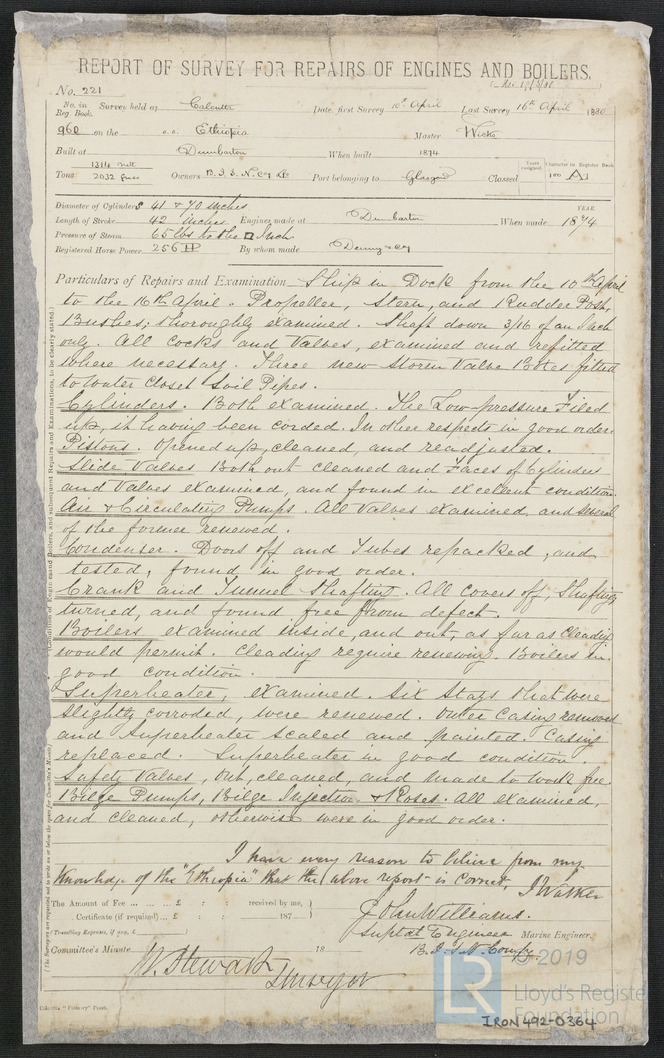 REPORT OF SURVEY FOR REPAIRS OF ENGINES AND BOILERS.
No. 221
No. in Reg. Book. Survey held at Calcutta Date, first Survey 10th April Last Survey 16th April 1880
960 on the s.s. Ethiopia Master Wicks
Built at Dumbarton When built 1874
Tons 1314 nett 2032 gross Owners B.I.S.N. Coy Ld Port belonging to Glasgow Classed Years assigned. Character in Register Book 100 A1
Diameter of Cylinders 41 & 70 inches
Length of Stroke 42 inches Engines made at Dumbarton When made YEAR 1874
Pressure of Steam 65 lbs to the □ Inch
Registered Horse Power 256 HP By whom made Denny & Coy
Particulars of Repairs and Examination Ship in Dock from the 10th April
to the 16th April. Propeller, Stern, and Rudder Post,
Bushes, thoroughly examined. Shaft down 3/16 of an Inch
only. All Cocks and Valves, examined and refitted
where necessary. Three new Storm Valve Boxes fitted
to Water Closet Soil Pipes.
Cylinders. Both examined. The Low-pressure Filed
up, it having been corded. In other respects in good order.
Pistons. Opened up, cleaned, and readjusted.
Slide Valves Both out cleaned and Faces of Cylinders
and Valves examined, and found in excellent condition.
Air & Circulating Pumps. All Valves examined, and several
of the former renewed.
Condenser. Doors off and Tubes repacked, and
tested, found in good order.
Crank and Tunnel Shafting. All covers off, Shafting
turned, and found free from defect.
Boilers examined inside, and out, as far as Cleading
would permit. Cleading require renewing. Boilers in
good condition.
Superheater, examined. Six Stays that were
slightly corroded, were renewed. Outer Casing removed
and Superheater scaled and painted. Casing
replaced. Superheater in good condition.
Safety Valves, out, cleaned, and made to work free.
Bilge Pumps, Bilge Injection & Roses. All examined,
and cleaned, otherwise were in good order.
I have every reason to believe from my
Knowledge of the "Ethiopia" that the above report is correct, J Walker
The Amount of Fee ... £ : : received by me,
Certificate (if required) ... £ : : 187
(Travelling Expenses, if any, £ )
John Williams.
Suptdt Engineer Marine Engineer.
B.I.S.N. Compy.
Committee's Minute 18
W. Stewart
Surveyor
(The Surveyors are requested not to write on or below the space for Committee's Minute)
© 2019
LR
Lloyd's Register
Foundation
IRON492-0364